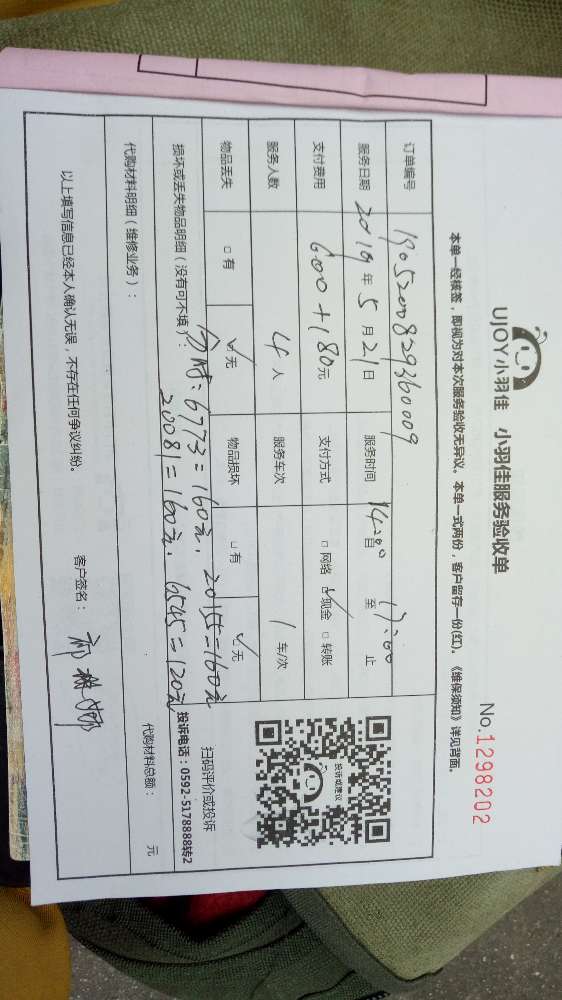 UJOY小羽佳 小羽佳服务验收单
No.1298202
本单一经核签，即视为对本次服务验收无异议。本单一式两份，客户留存一份(红)。《维保须知》详见背面。
订单编号 1905200829360009
服务日期 2019年5月21日 服务时间 14:00 至 17:00 止
支付费用 600+180元 支付方式 □网络 ☑现金 □转账
服务人数 4人 服务车次 1车/次
物品丢失 □有 ☑无 物品损坏 □有 ☑无
损坏或丢失物品明细（没有可不填）：
6773=160元. 20155=160元
20081=160元. 6545=120元
扫码评价或投诉
投诉电话：0592-5178888转2
投诉或建议
代购材料明细（维修业务）：
代购材料总额： 元
以上填写信息已经本人确认无误，不存在任何争议纠纷。
客户签名：